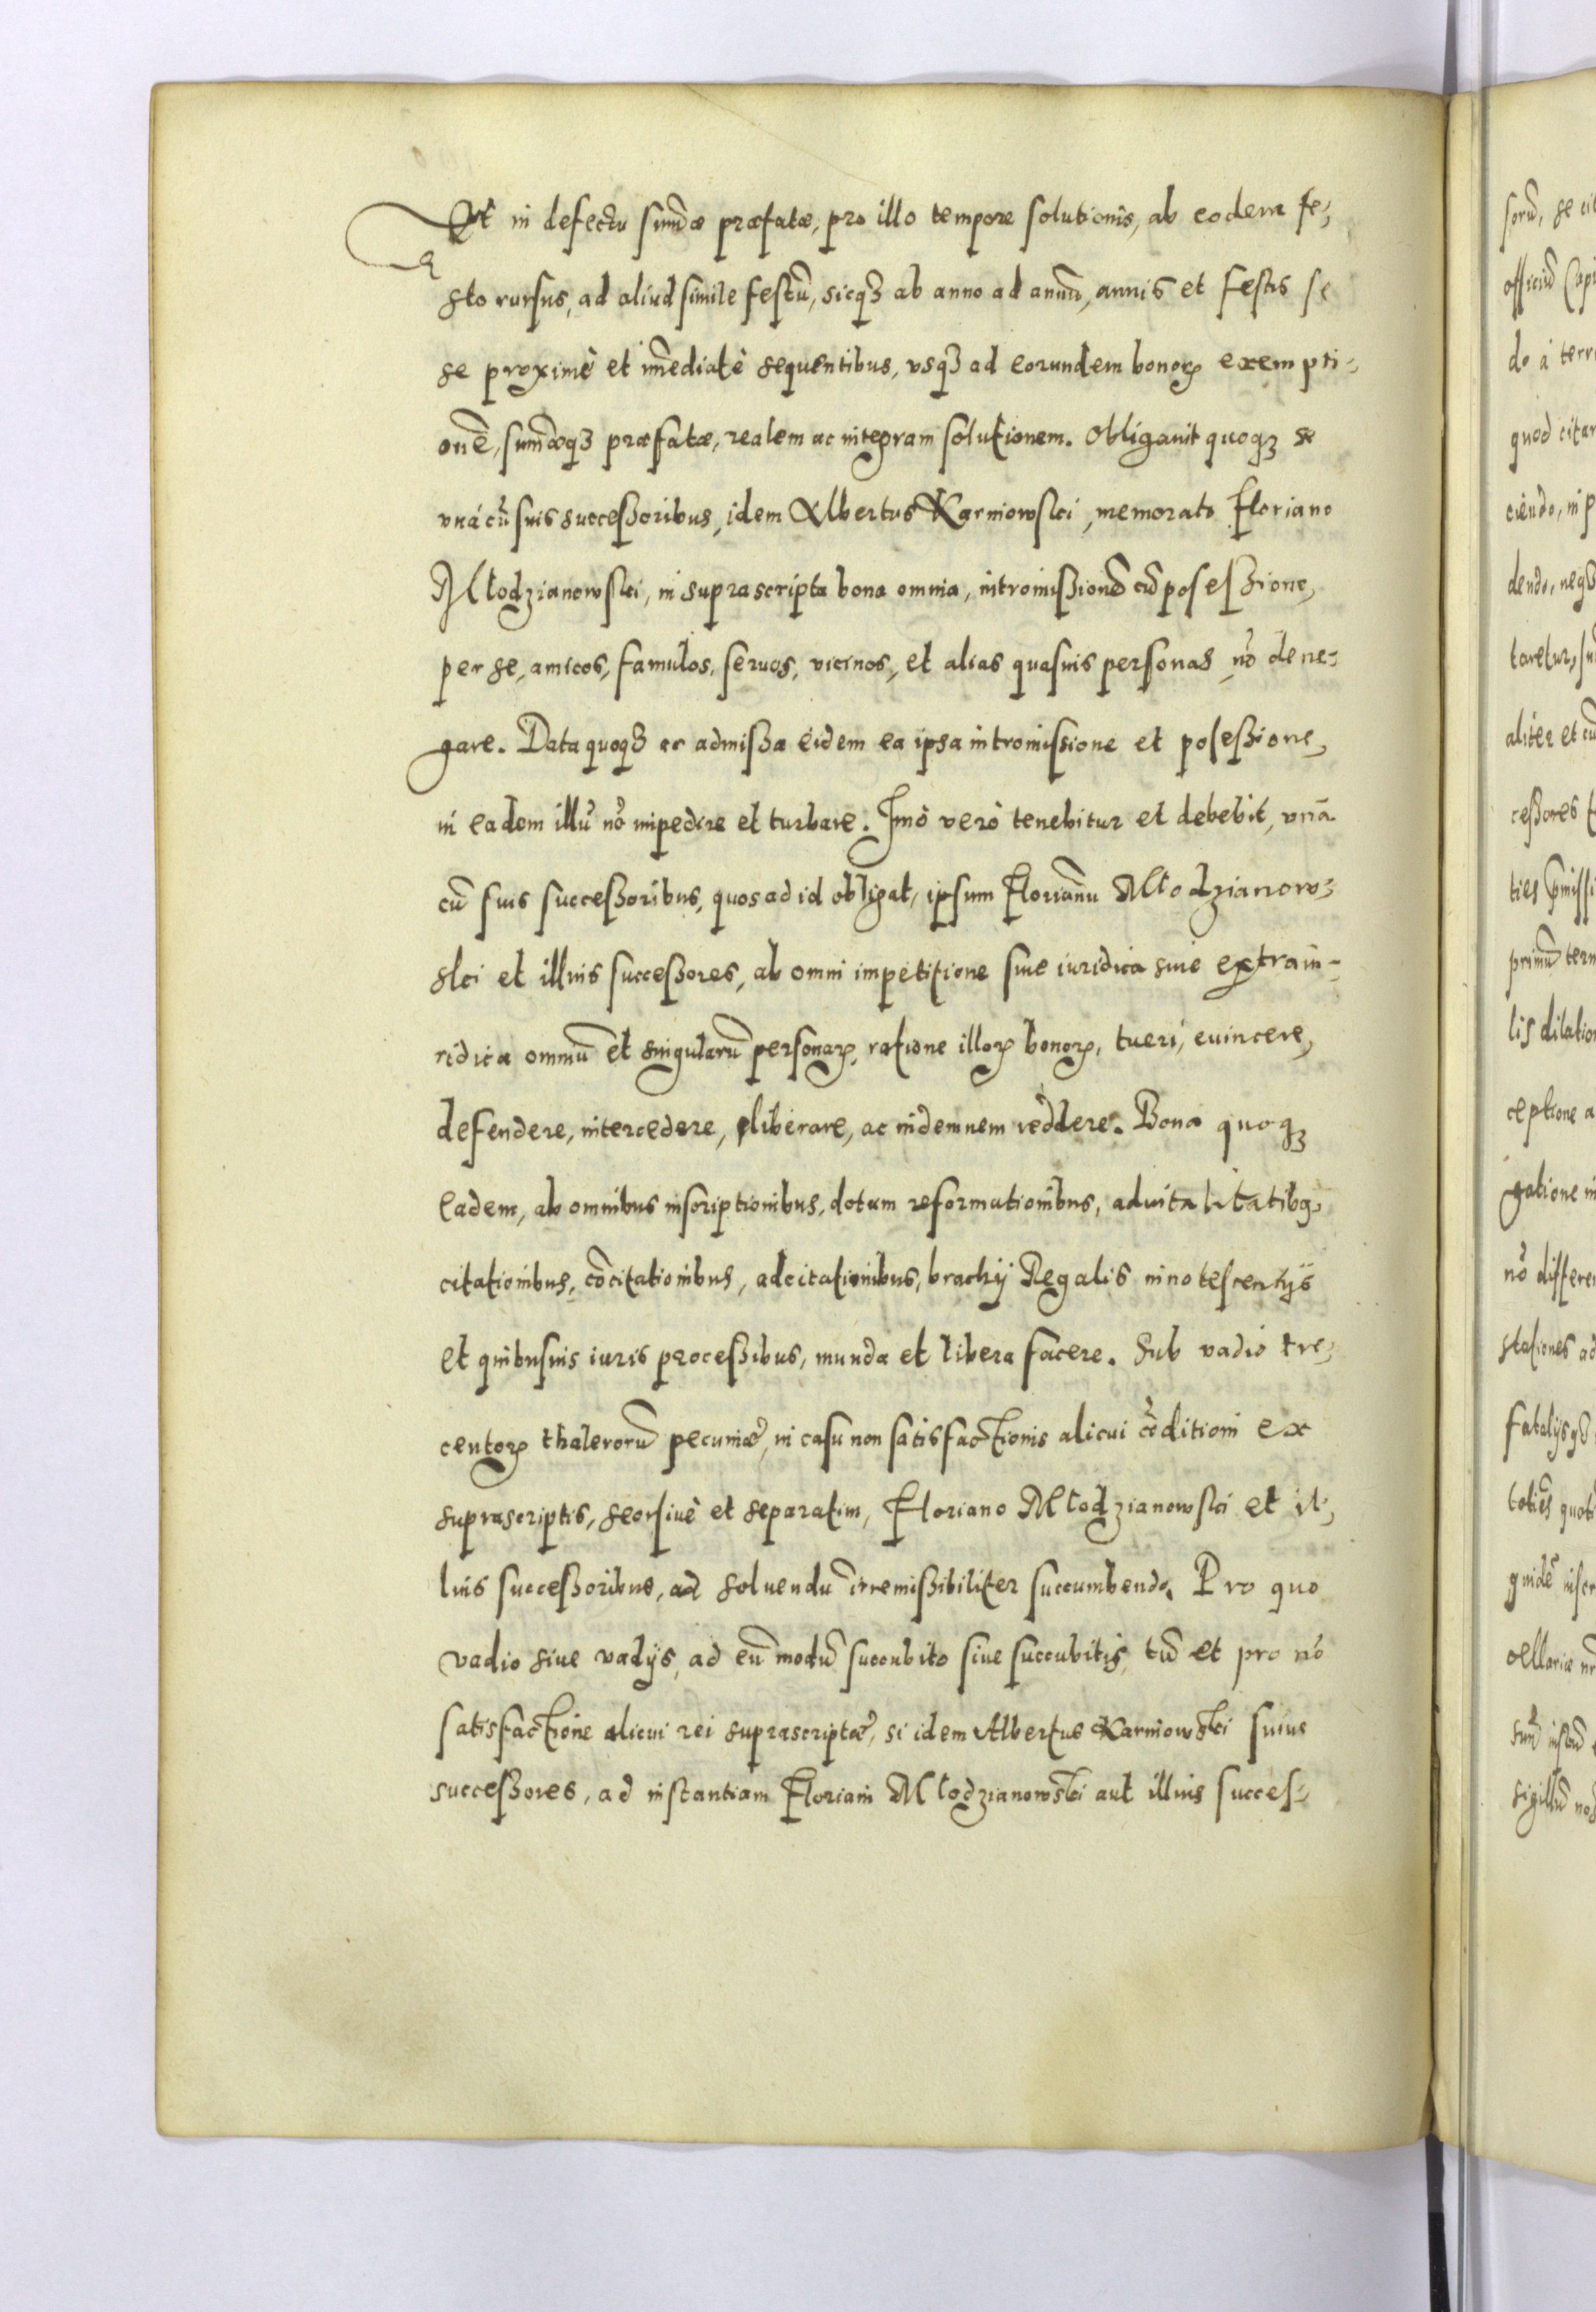 Et in defectu sum̃æ præfatæ, pro illo tempore solutionis, ab eodem fe,
sto rursus, ad aliud simile festũ, sicq3 ab anno ad annũ, annis et festis se
se proximè et im̃ediatè sequentibus, vsq3 ad eorundem bonoꝝ exempti-
onẽ, sum̃æq3 præfatæ, realem ac integram solutionem. Obligauit quoq3 se
vnà cũ suis successoribus, idem Albertus Karniowski, memorato Floriano
Młodzianowski, in suprascripta bona omnia, intromissionẽ cũ posessione,
per se, amicos, famulos, seruos, vicinos, et alias quasuis personas, nõ dene-
gare. Data quoq3 ac admissa eidem ea ipsa intromissione et posessione,
in eadem illũ nõ impedire et turbare. Imò verò tenebitur et debebit, vnà
cũ suis successoribus, quos ad id obligat, ipsum Florianũ Młodzianow-
ski et illius successores, ab omni impetitione siue iuridica siue extraiu-
ridica omniũ et singularũ personaꝝ, ratione illoꝝ bonoꝝ, tueri, euincere,
defendere, intercedere, liberare, ac indemnem reddere. Bona quoq3
eadem, ab omnibus inscriptionibus, dotum reformationibus, aduitalitatibq,
citationibus, cõcitationibus, adcitationibus, brachij Regalis innotescentijs
et quibusuis iuris processibus, munda et libera facere. Sub vadio tre,
centoꝝ thalerorũ pecuniæ, in casu non satisfactionis alicui cõditioni ex
suprascriptis, seorsiuè et separatim, Floriano Młodzianowski et il,
lius successoribus, ad soluendũ irremissibiliter succumbendo. Pro quo
vadio siue vadijs, ad eũ modũ succubito siue succubitis, tũ et pro nõ
satisfactione alicui rei suprascriptæ, si idem Albertus Karniowski suius
successores, ad instantiam Floriani Młodzianowski aut illius succes-